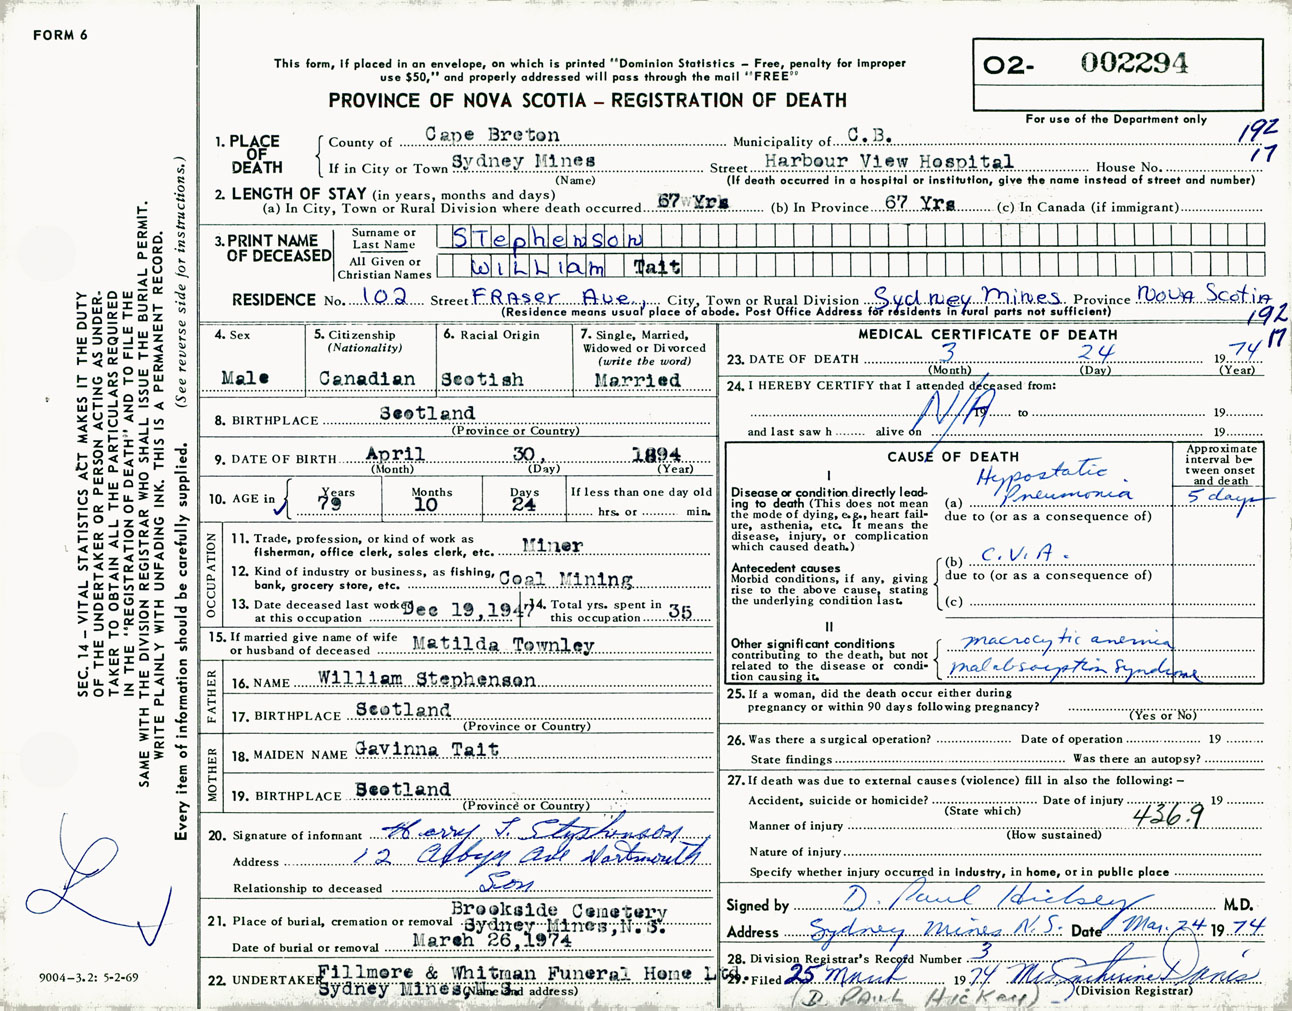 FORM 6
This form, if placed in an envelope, on which is printed "Dominion Statistics – Free, penalty for improper
use $50," and properly addressed will pass through the mail "FREE"
PROVINCE OF NOVA SCOTIA – REGISTRATION OF DEATH
O2- 002294
For use of the Department only
192
17
1. PLACE OF DEATH
County of Cape Breton Municipality of C.B.
If in City or Town Sydney Mines Street Harbour View Hospital House No.
(Name) (If death occurred in a hospital or institution, give the name instead of street and number)
2. LENGTH OF STAY (in years, months and days)
(a) In City, Town or Rural Division where death occurred 67 Yrs (b) In Province 67 Yrs (c) In Canada (if immigrant)
3. PRINT NAME OF DECEASED
Surname or Last Name STephenson
All Given or Christian Names WILLiam Tait
RESIDENCE No. 102 Street FRASER Ave., City, Town or Rural Division Sydney Mines Province Nova Scotia
(Residence means usual place of abode. Post Office Address for residents in rural parts not sufficient)
192
17
4. Sex
Male
5. Citizenship
(Nationality)
Canadian
6. Racial Origin
Scotish
7. Single, Married,
Widowed or Divorced
(write the word)
Married
8. BIRTHPLACE Scotland
(Province or Country)
9. DATE OF BIRTH April 30, 1894
(Month) (Day) (Year)
10. AGE in
Years Months Days If less than one day old
79 10 24 hrs. or min.
OCCUPATION
11. Trade, profession, or kind of work as
fisherman, office clerk, sales clerk, etc. Miner
12. Kind of industry or business, as fishing,
bank, grocery store, etc. Coal Mining
13. Date deceased last worked
at this occupation Dec 19,1947
14. Total yrs. spent in
this occupation 35
15. If married give name of wife
or husband of deceased Matilda Townley
FATHER
16. NAME William Stephenson
17. BIRTHPLACE Scotland
(Province or Country)
MOTHER
18. MAIDEN NAME Gavinna Tait
19. BIRTHPLACE Scotland
(Province or Country)
20. Signature of informant Harry T. Stephenson
Address 12 Ave Dartmouth
Relationship to deceased Son
21. Place of burial, cremation or removal Brookside Cemetery
Sydney Mines, N.S.
Date of burial or removal March 26,1974
22. UNDERTAKER Fillmore & Whitman Funeral Home Ltd.
Sydney Mines, N.S.
(Name and address)
MEDICAL CERTIFICATE OF DEATH
23. DATE OF DEATH 3 24 1974
(Month) (Day) (Year)
24. I HEREBY CERTIFY that I attended deceased from:
N/A
19 to 19
and last saw h alive on 19
CAUSE OF DEATH
Approximate
interval be-
tween onset
and death
I
Disease or condition directly lead-
ing to death (This does not mean
the mode of dying, e.g., heart fail-
ure, asthenia, etc. It means the
disease, injury, or complication
which caused death.)
(a) Hypostatic
Pneumonia 5 days
due to (or as a consequence of)
Antecedent causes
Morbid conditions, if any, giving
rise to the above cause, stating
the underlying condition last.
(b) C.V.A.
due to (or as a consequence of)
(c)
II
Other significant conditions
contributing to the death, but not
related to the disease or condi-
tion causing it.
macrocytic anemia
malabsorption Syndrome
25. If a woman, did the death occur either during
pregnancy or within 90 days following pregnancy?
(Yes or No)
26. Was there a surgical operation? Date of operation 19
State findings Was there an autopsy?
27. If death was due to external causes (violence) fill in also the following: –
Accident, suicide or homicide? Date of injury 19
(State which)
436.9
Manner of injury
(How sustained)
Nature of injury
Specify whether injury occurred in industry, in home, or in public place
Signed by D. Paul Hickey M.D.
Address Sydney Mines N.S. Date Mar. 24 1974
28. Division Registrar's Record Number 3
29. Filed 25 March 1974 Mrs Catherine Davis
(D. PAUL HICKEY) (Division Registrar)
SEC. 14 – VITAL STATISTICS ACT MAKES IT THE DUTY
OF THE UNDERTAKER OR PERSON ACTING AS UNDER-
TAKER TO OBTAIN ALL THE PARTICULARS REQUIRED
IN THE "REGISTRATION OF DEATH" AND TO FILE THE
SAME WITH THE DIVISION REGISTRAR WHO SHALL ISSUE THE BURIAL PERMIT.
WRITE PLAINLY WITH UNFADING INK. THIS IS A PERMANENT RECORD.
Every item of information should be carefully supplied. (See reverse side for instructions.)
9004-3.2: 5-2-69